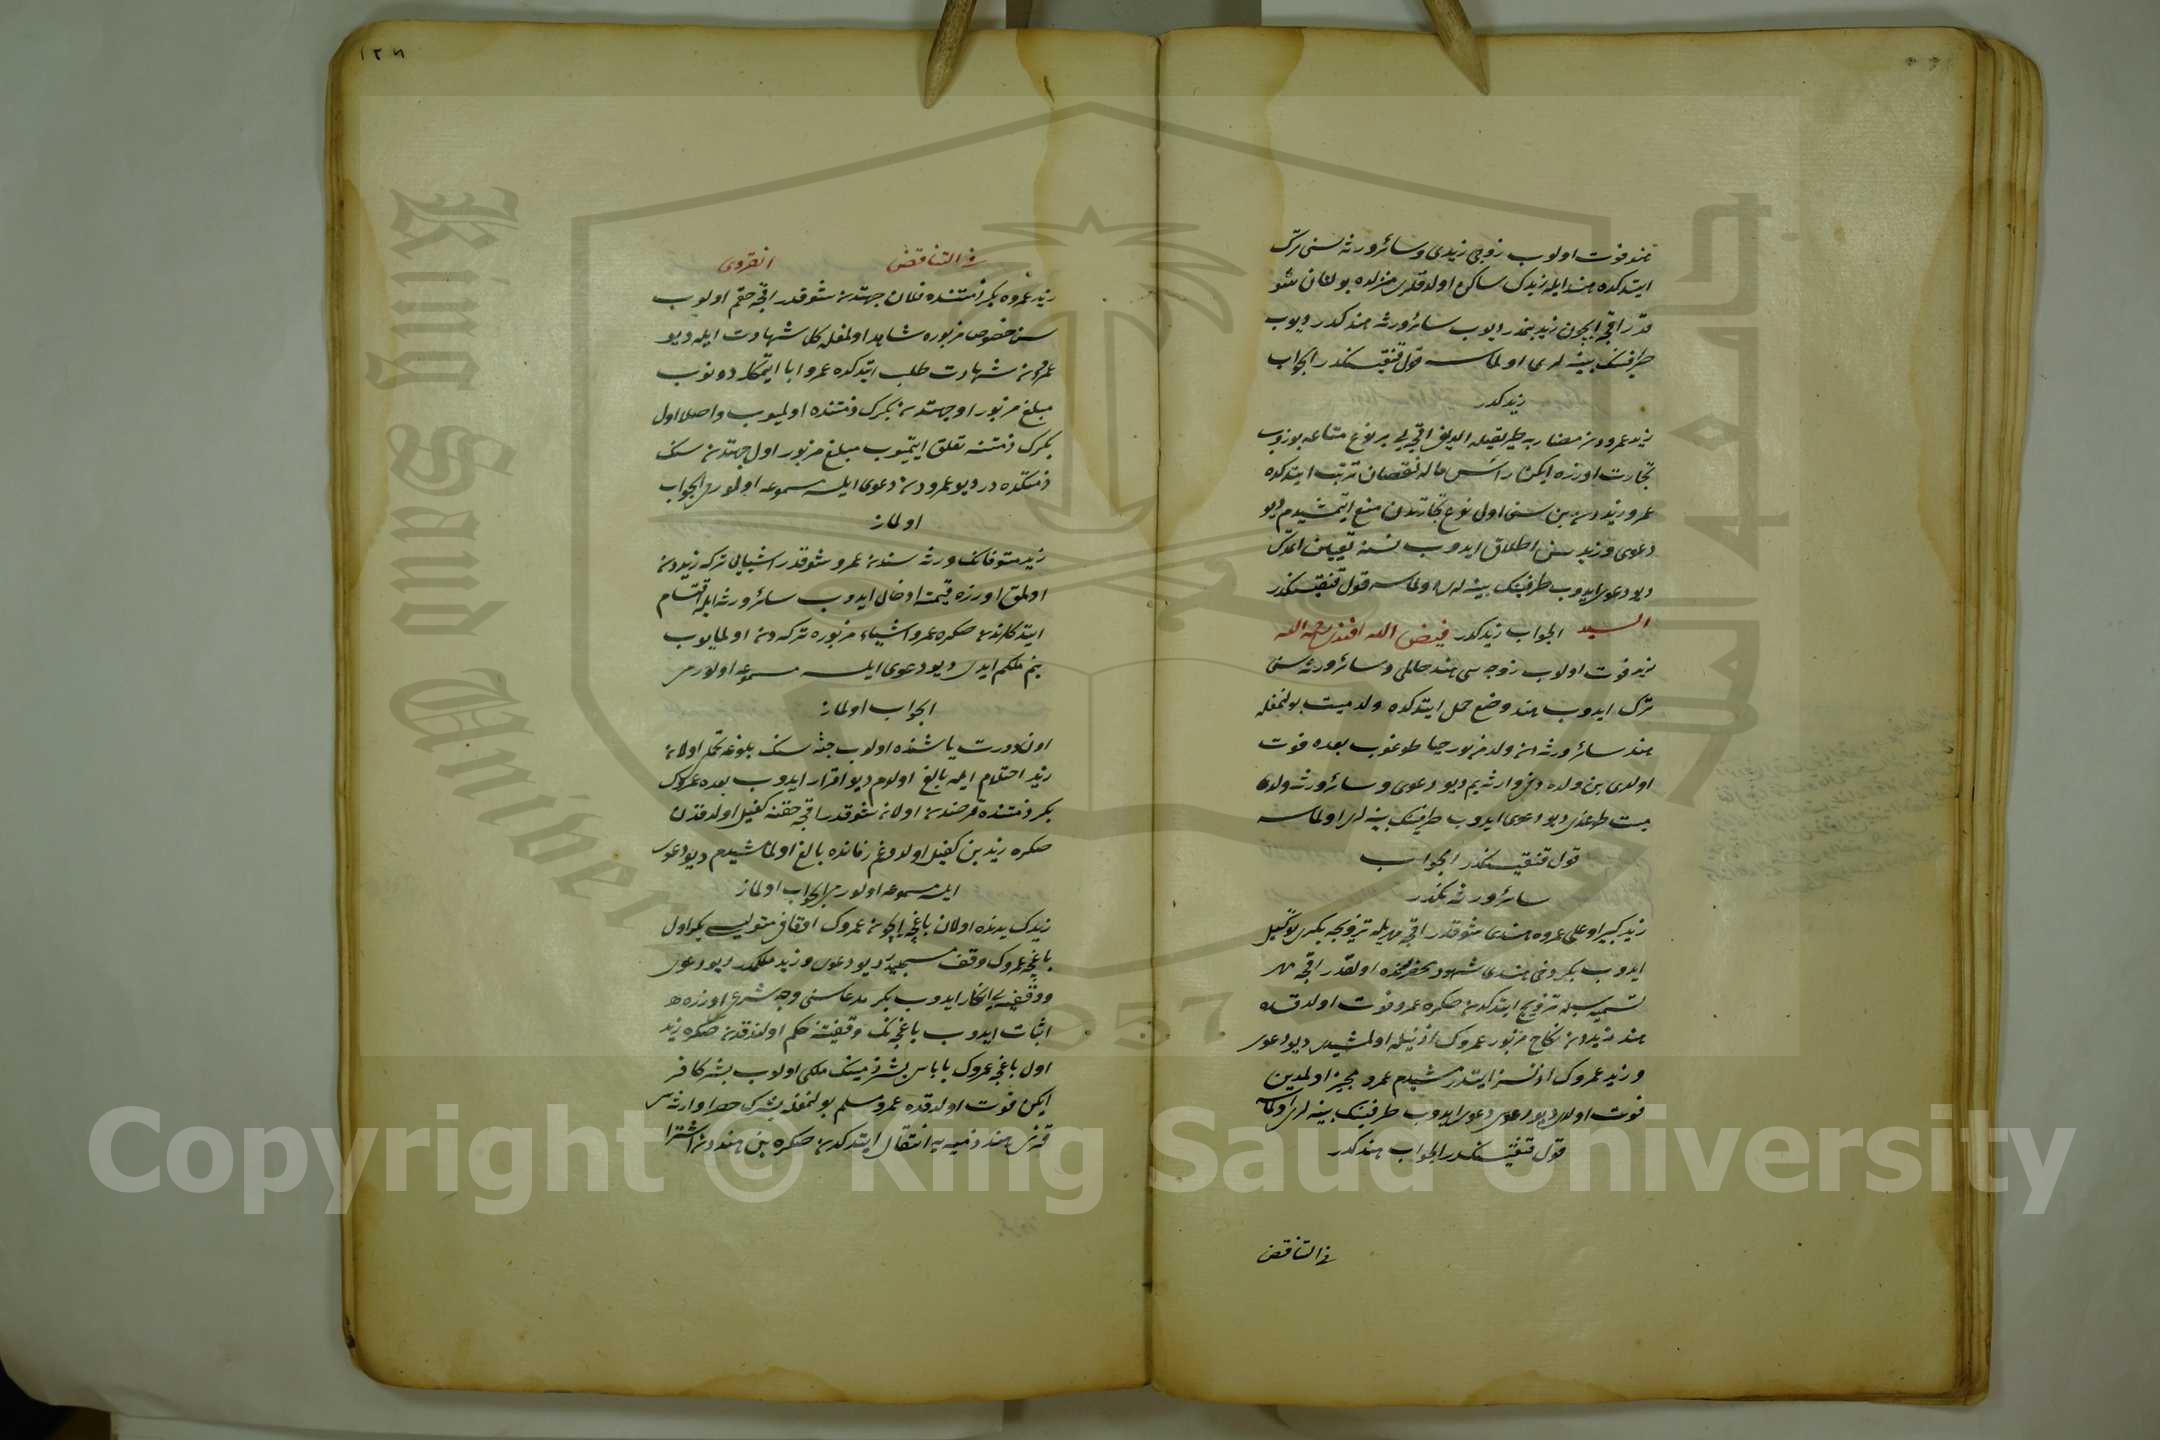 هند فوت اولوب زوجی زیدی و سائر ورثه سنی ترک
ایتدکده هند ایله زیدک ساکن اولدقلری منزلده بولنان شو
قدر اقچه ایچون زید بنمدر دیوب سائر ورثه هندکدر دیوب
طرفینک بینه لری اولماسه قول قنقیسنکدر الجواب
زیدکدر
زید عمرودن مضاربه طریقیله الدیغی اقچه ایله بر نوع متاعه بوزوب
تجارت اوزره ایکن راس ماله نقصان ترتب ایتدکده
عمرو زیددن بن سنی اول نوع تجارتدن منع ایتمشیدم دیو
دعوی و زید سن اطلاق ایدوب نسنه تعیین ایتمدک
دیو دعوی ایدوب طرفینک بینه لری اولماسه قول قنقیسنکدر
الجواب زیدکدر السید فیض الله افندی رحمه الله
زید فوت اولوب زوجه سی هند حاملی و سائر ورثه سنی
ترک ایدوب هند وضع حمل ایتدکده ولد میت بولنمغله
هند سائر ورثه دن ولد مزبور حیا طوغوب بعده فوت
اولدی بن ولده دخی وارثه یم دیو دعوی و سائر ورثه ولد
میت طوغدی دیو دعوی ایدوب طرفینک بینه لری اولماسه
قول قنقیسنکدر الجواب
سائر ورثه نکدر
زید کبیر اوغلی عمروه هندی شوقدر اقچه مهر ایله تزویجه بکری توکیل
ایدوب بکر دخی هندی شهود محضرنده اولقدر اقچه مهر
تسمیه سیله تزویج ایتدکدن صکره عمرو فوت اولدقده
هند زیددن نکاح مزبور عمروک اذنیله اولمشیدی دیو دعوی
و زید عمروک اذنسز ایتدرمشیدم عمرو مجیز اولمدین
فوت اولدی دیو دعوی ایدوب طرفینک بینه لری اولماسه
قول قنقیسنکدر الجواب هندکدر
فی التناقض
۱۲۸
فی التناقض انقروی
زید عمروه بکر ذمتنده فلان جهتدن شوقدر اقچه حقم اولوب
سن خصوص مزبوره شاهد اولمغله کل شهادت ایله دیو
عمرودن شهادت طلب ایتدکده عمرو ابا ایتمکله دونوب
مبلغ مزبور او جهتدن بکرک ذمتنده اولمیوب و اصلا اول
بکرک ذمتنه تعلق ایتمیوب مبلغ مزبور اول جهتدن سنک
ذمتکده در دیو عمرودن دعوی ایلسه مسموعه اولورمی الجواب
اولماز
زید متوفانک ورثه سندن عمرو شوقدر اشیایی ترکه زیددن
اولمق اوزره قیمته ادخال ایدوب سائر ورثه ایله اقتسام
ایتدکلرندن صکره عمرو اشیاء مزبوره ترکه دن اولمایوب
بنم ملکم ایدی دیو دعوی ایلسه مسموعه اولورمی
الجواب اولماز
اون دورت یاشنده اولوب جثه سنک بلوغه تحملی اولان
زید احتلام ایله بالغ اولدم دیو اقرار ایدوب بعده عمروک
بکر ذمتنده قرضدن اولان شوقدر اقچه حقنه کفیل اولدقدن
صکره زید بن کفیل اولدوغم زمانده بالغ اولمامشیدم دیو دعوی
ایلسه مسموعه اولورمی الجواب اولماز
زیدک یدنده اولان باغچه ایچون عمروک اوقافی متولیسی بکر اول
باغچه عمروک وقف مسجلیدر دیو دعوی و زید ملکمدر دیو دعوی
و وقفیتی انکار ایدوب بکر مدعاسنی وجه شرعی اوزره
اثبات ایدوب باغچه نک وقفیتنه حکم اولندقدن صکره زید
اول باغچه عمروک باباسی بشر ذمینک ملکی اولوب بشر کافر
ایکن فوت اولدقده عمرو مسلم بولنمغله بشرک حصرا وارثه سی
قزی هند ذمیه یه انتقال ایتدکدن صکره بن هنددن اشترا